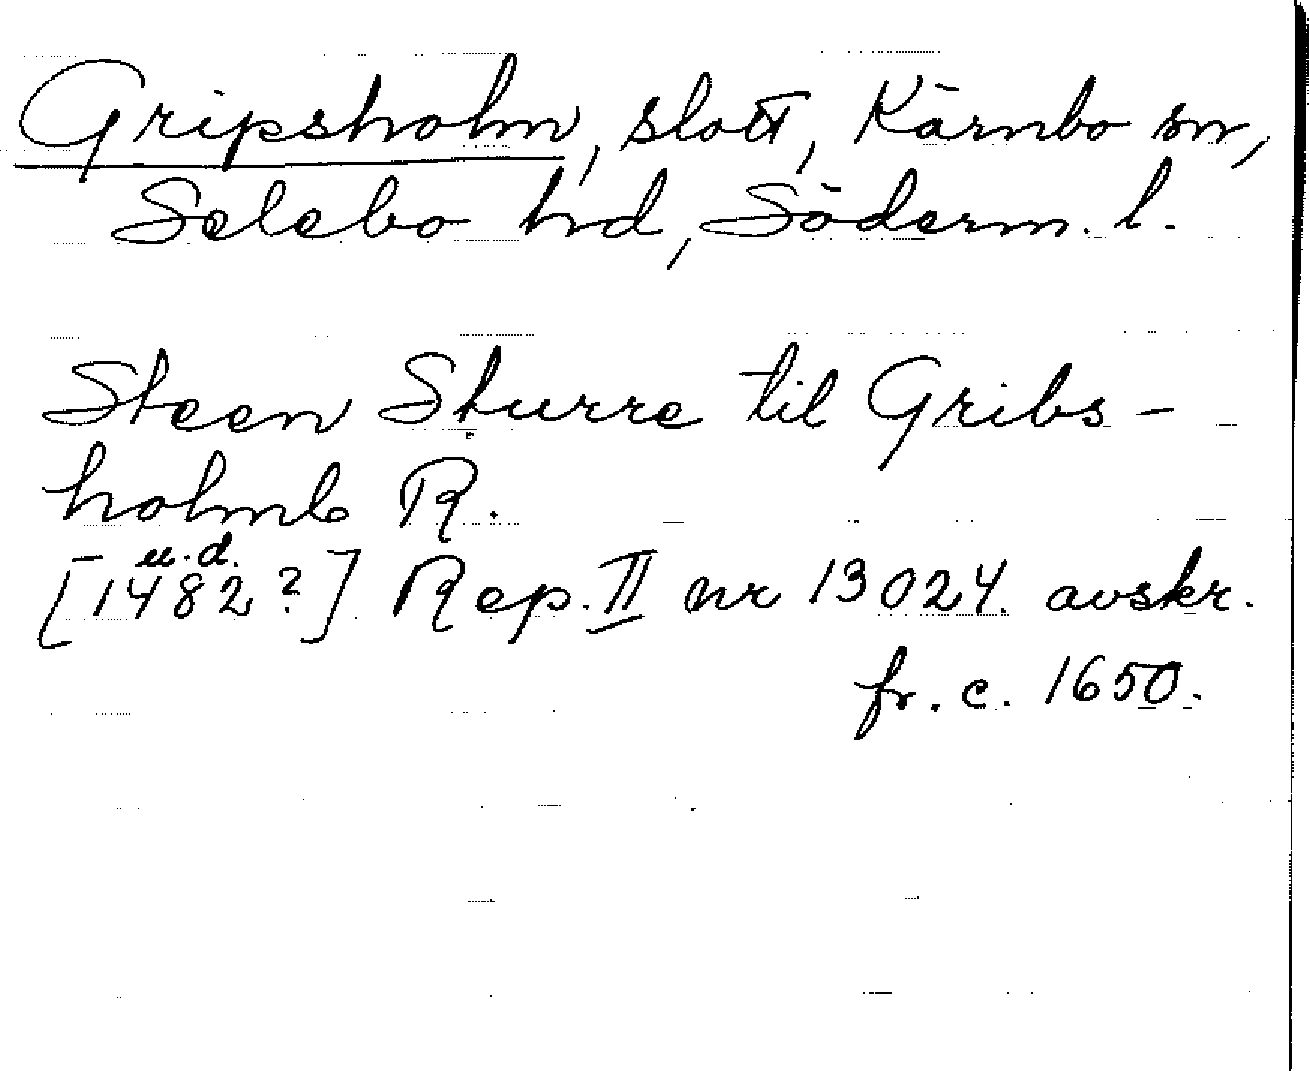 Gripsholm, slott, Kärnbo sn,
Selebo hd, Söderm. l.
Steen Sturre til Gribs-
holmb R.
u.d.
[1482?] Rep. II nr 13024. avskr.
fr. c. 1650.